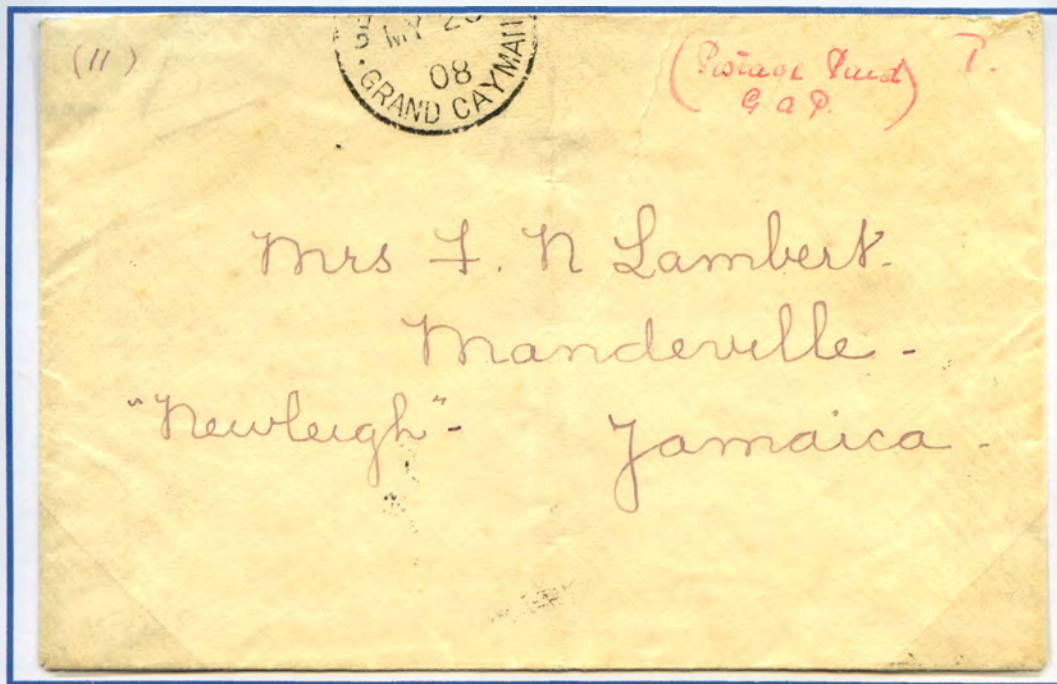 (11)
MY
08
GRAND CAYMAN
(Postage Paid)
G A P.
T.
Mrs F. N Lambert.
Mandeville -
"Newleigh" - Jamaica -